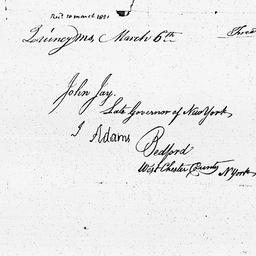 Quincy Ms. March 6th Free
John Jay.
Late Governor of New York
J Adams
Bedford
West Chester County N York